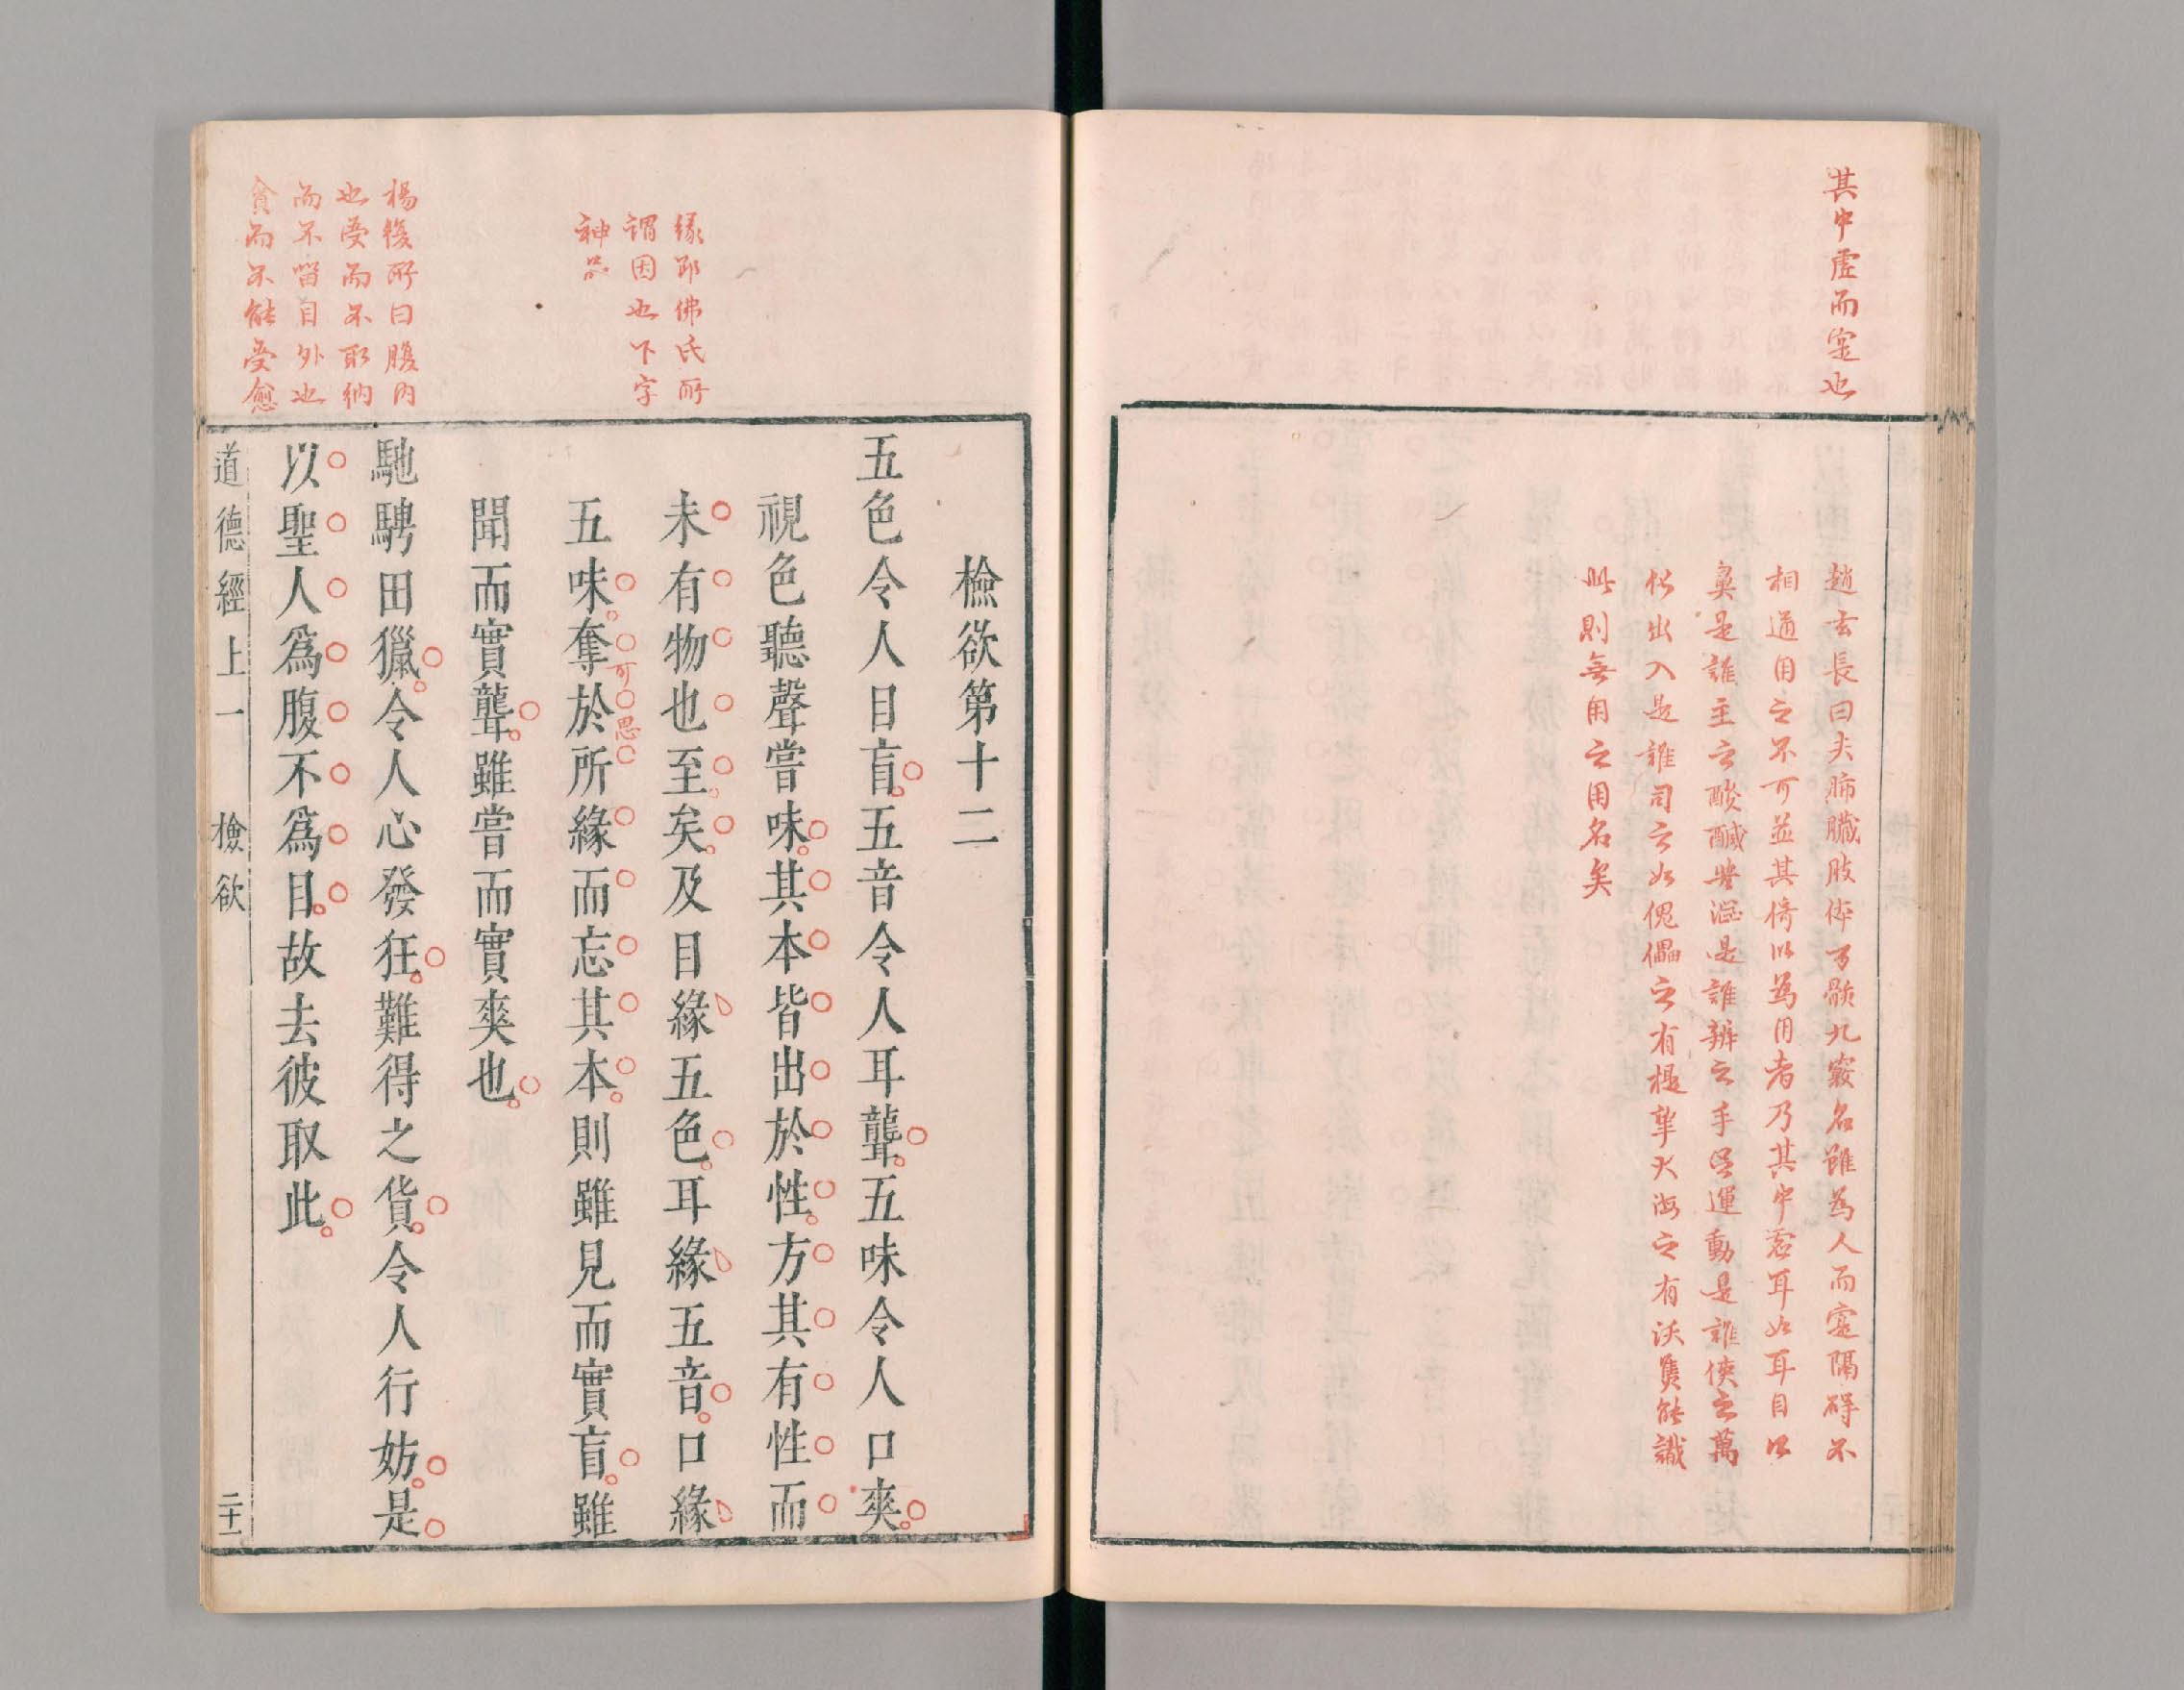 其中虛而定也
趙玄長曰夫肺臟肢体百骸九竅名雖為人而寔隔碍不
相通用之不可並其倚以為用者乃其中宻耳如耳目口
鼻是誰主之酸醎苦澁是誰辨之手足運動是誰使之萬
化出入是誰司之如傀儡之有提挈大海之有沃隻能識
此則無用之用名矣
緣即佛氏所
謂因也下字
神品
楊復所曰腹內
也受而不取納
而不留目外也
貪而不能受愈
檢欲第十二
五色令人目盲五音令人耳聾五味令人口爽
視色聽聲嘗味其本皆出於性方其有性而
未有物也至矣及目緣五色耳緣五音口緣
五味奪於所緣而忘其本則雖見而實盲雖
可思
聞而實聾雖嘗而實爽也
馳騁田獵令人心發狂難得之貨令人行妨是
以聖人為腹不為目故去彼取此
道德經上一 檢欲 二十一